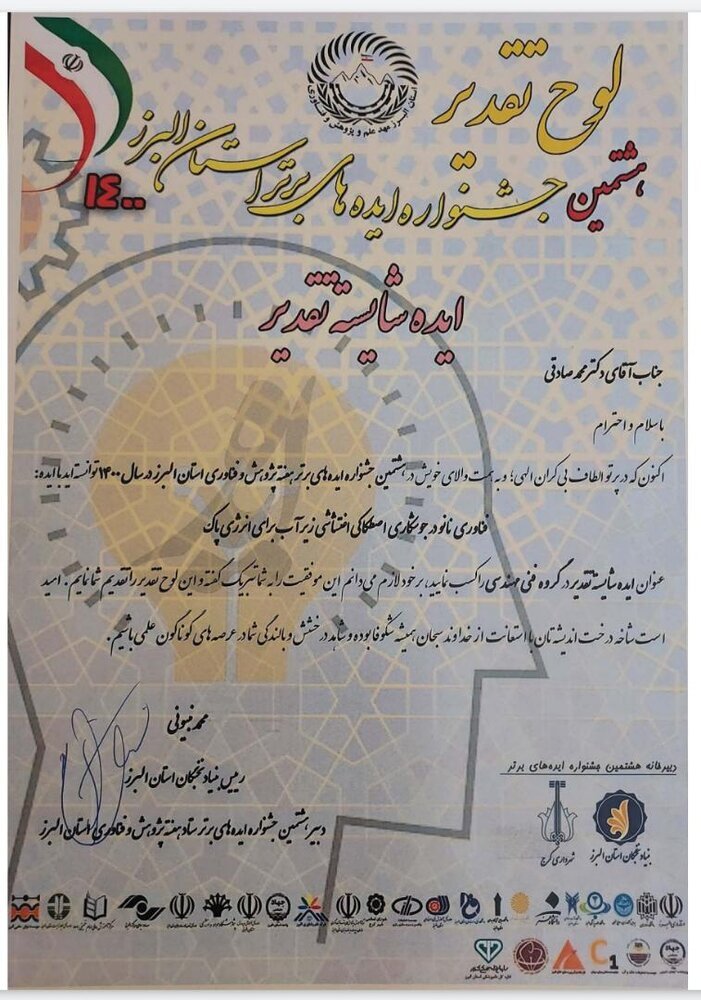 لوح تقدیر
هشتمین جشنواره ایده های برتر استان البرز
۱۴۰۰
استان البرز مهد علم و پژوهش و فناوری
ایده شایسته تقدیر
جناب آقای دکتر محمد صادقی
با سلام و احترام
اکنون که در پرتو الطاف بی کران الهی؛ و به همت والای خویش در هشتمین جشنواره ایده های برتر هفته پژوهش و فناوری استان البرز در سال ۱۴۰۰ توانسته اید با ایده:
فناوری نانو در جوشکاری اصطکاکی اغتشاشی زیر آب برای انرژی پاک
عنوان ایده شایسته تقدیر در گروه فنی مهندسی را کسب نمایید، بر خود لازم می دانم این موفقیت را به شما تبریک گفته و این لوح تقدیر را تقدیم شما نمایم. امید
است شاخه درخت اندیشه تان با استعانت از خداوند سبحان همیشه شکوفا بوده و شاهد درخشش و بالندگی شما در عرصه های گوناگون علمی باشیم.
محمد نبیونی
رییس بنیاد نخبگان استان البرز
دبیر هشتمین جشنواره ایده های برتر ستاد هفته پژوهش و فناوری استان البرز
دبیرخانه هشتمین جشنواره ایده‌های برتر
بنیاد نخبگان استان البرز
شهرداری کرج
C1